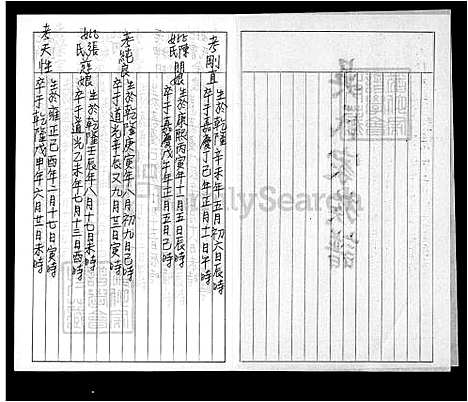 考剛直
生於乾隆辛未年五月初六日辰時
卒于嘉慶丁巳年正月十一日午時
妣陳閨娘
氏
生於康熙丙寅年十一月五日辰時
卒于嘉慶戊午年正月五日己時
考純良
生於乾隆庚寅年八月初九日己時
卒于道光辛辰又九月廿三日寅時
妣張慈娘
氏
生於乾隆壬辰年八月十七日未時
卒于道光乙未年七月十三日酉時
考天性
生於雍正己酉年二月十七日寅時
卒于乾隆戊甲年六月廿一日未時
FamilySearch